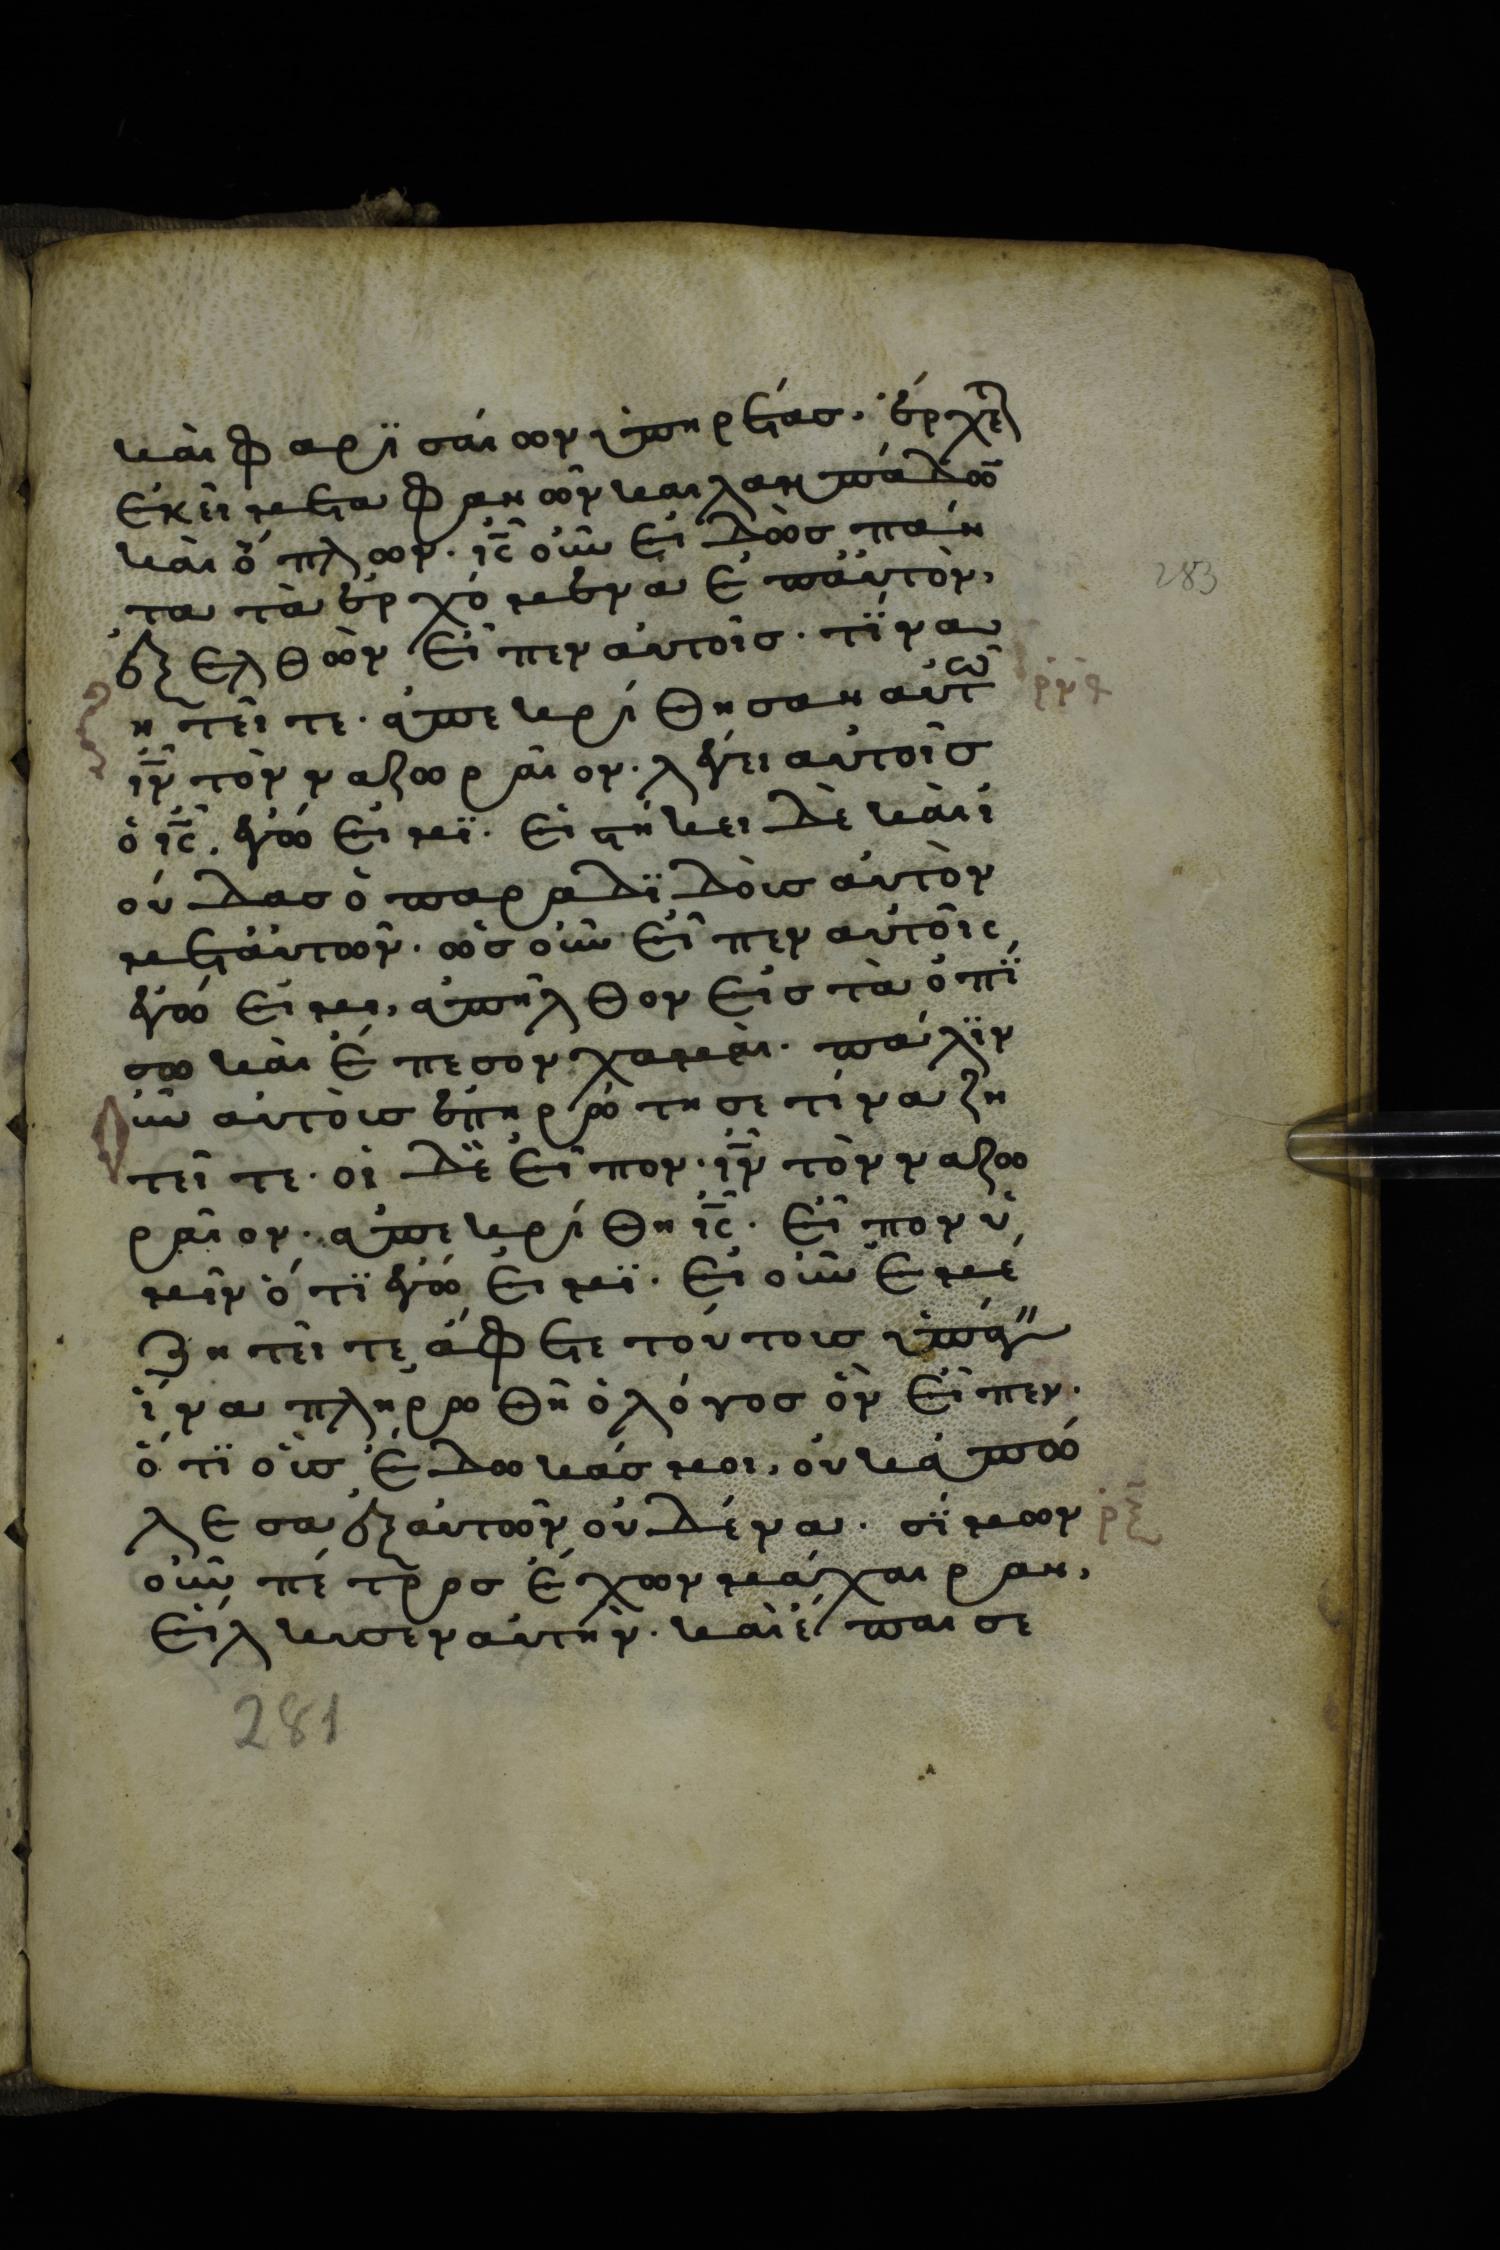 καὶ φαρϊσάιων ϋπηρετας. ἔρχετ(αι)
ἐκεῖ μετα φανῶν και λαμπάδω̄
καὶ ὅπλων. ις̄ οὖν εἰδὼς πάν
τα τὰ ἐρχόμενα ἐπ᾽ἀυτὸν,
ἐξελθὼν εἶπεν ἀυτοῖς. τίνα
ζητεῖτε. ἀπεκρίθησαν αὐτῶ
ιν̄ τὸν ναζωραῖον. λέγει αὐτοῖς
ὁ ις̄. ἐγώ εἰμϊ. εἱστήκει δὲ καὶ ἰ
ούδας ὁ παραδϊδοὺς ἀυτὸν
μετ᾽ἀυτῶν. ὡς οὖν εἶπεν αὐτοῖς,
ἐγώ εἰμι, ἀπῆλθον εἰς τὰ ὀπΐ
σω καὶ ἔπεσον χαμαὶ. πάλϊν
οὖν ἀυτοὺς ἐπηρώτησε τίνα ζη
τεῖτε. οἱ δὲ εἶπον. ιν̄ τὸν ναζω
ραῖον. ἀπεκρίθη ις̄. εἶπον ὑ
μῖν ὅτϊ ἐγώ εἰμϊ. εἰ οὖν ἐμέ
ζητεῖτε, ἄφετε τούτους ϋπάγ(ειν)
ἵνα πληρωθῆ ὁ λόγος ὃν εἶπεν.
ὅτϊ οὓς ἔδωκάς μοι, ούκ ἀπώ
λεσα ἐξ ἀυτῶν οὐδένα. σΐμων
οὖν πέτρος ἔχων μάχαιραν,
εἵλκυσεν ἀυτὴν. καὶ ἔπαισε
283
ρνθ
ρξ
281